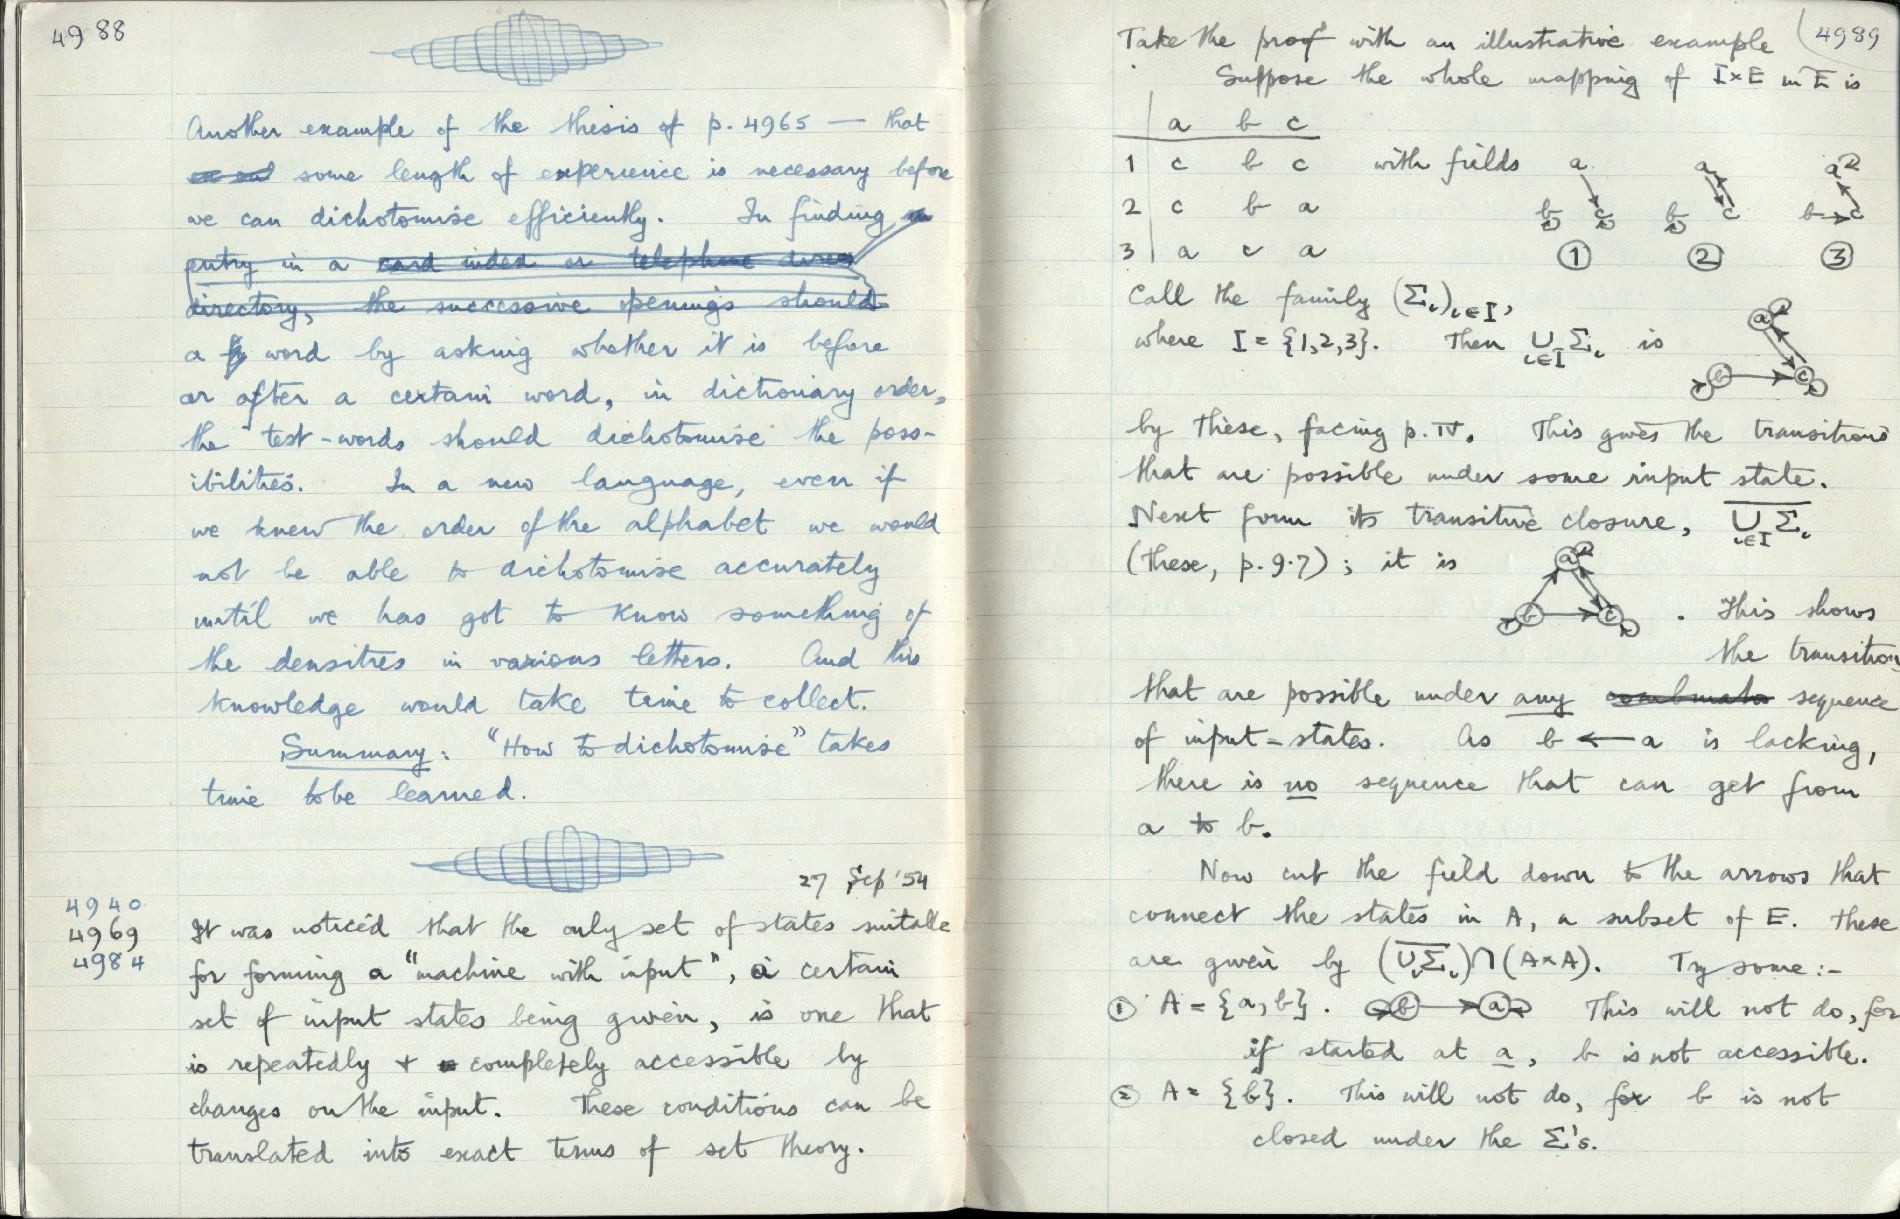 4988
Another example of the thesis of p. 4965 — that
some length of experience is necessary before
we can dichotomise efficiently. In finding
entry in a card index or telephone direc
directory, the successive openings should
a word by asking whether it is before
or after a certain word, in dictionary order,
the test-words should dichotomise the poss-
ibilities. In a new language, even if
we knew the order of the alphabet we would
not be able to dichotomise accurately
until we has got to know something of
the densities in various letters. And this
knowledge would take time to collect.
Summary: "How to dichotomise" takes
time to be learned.
27 Sep '54
4940
4969
4984
It was noticed that the only set of states suitable
for forming a "machine with input", a certain
set of input states being given, is one that
is repeatedly + completely accessible by
changes on the input. These conditions can be
translated into exact terms of set theory.
4989
Take the proof with an illustrative example
Suppose the whole mapping of I×E in E is
a b c
1 c b c with fields
2 c b a
3 a c a
a b c ①
a b c ②
a b c ③
Call the family (Σι)ι∈I,
where I = {1,2,3}. Then ∪ι∈I Σι is
a b c
by These, facing p. IV. This gives the transitions
that are possible under some input state.
Next form its transitive closure, \overline{∪ι∈I Σι}
(These, p. 9·7); it is
a b c
. This shows
the transition
that are possible under any sequence
of input-states. As b ← a is lacking,
there is no sequence that can get from
a to b.
Now cut the field down to the arrows that
connect the states in A, a subset of E. These
are given by (\overline{∪ιΣι}) ∩ (A×A). Try some:-
① A = {a, b}. b → a This will not do, for
if started at a, b is not accessible.
② A = {b}. This will not do, for b is not
closed under the Σ's.